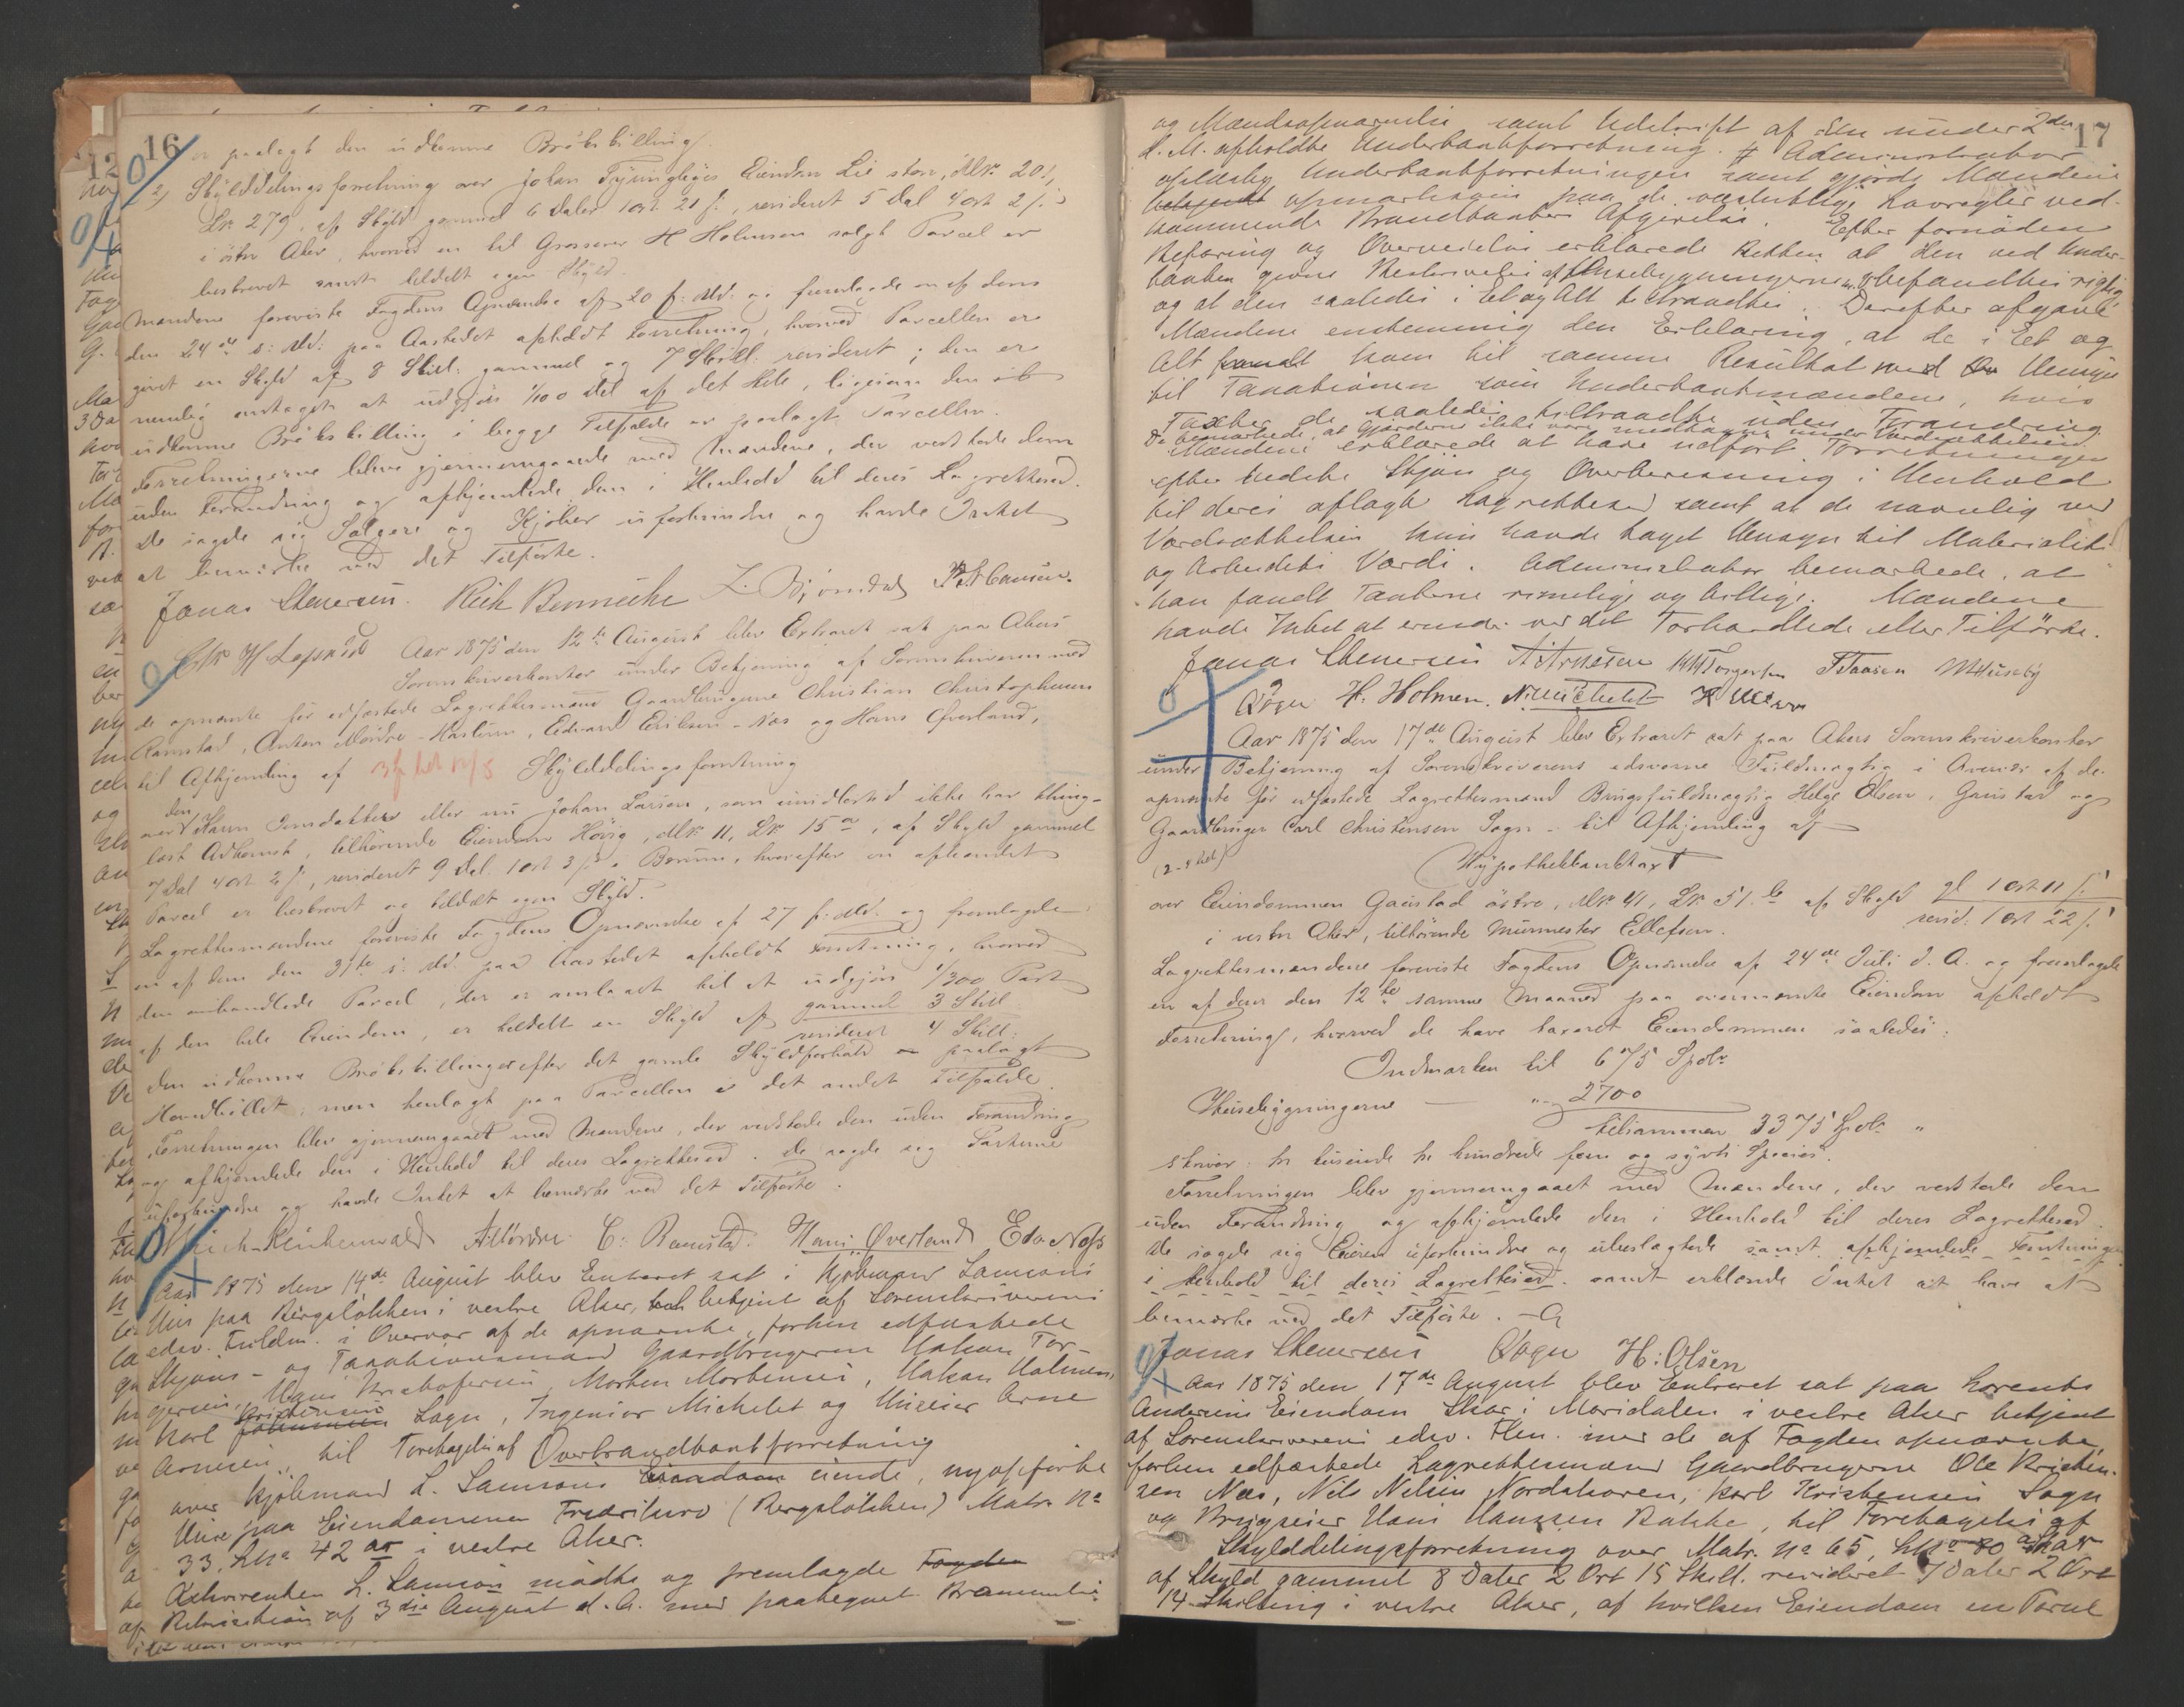 16
er paalagt den udkomne Brøkskilling.
2) Skylddelingsforretning over Johan Eiendom Lie store, Mk. 20,
Lk. 279, af Skyld gammel 6 Daler 1 ort 21 s., revideret 5 Dal 4 ort 2 s.
i østre Aker, hvorved en til Grosserer H Holmsen solgt Parcel er
beskrevet samt tildelt egen Skyld.
Mændene foreviste Fogdens Opnævnelse af 20 f. Md. og fremlagde en af dem
den 24de s: Md: paa Aastedet afholdt Forretning, hvorved Parcellen er
givet en Skyld af 8 Skill: gammel og 7 Skill: revideret; den er
nemlig antaget at udgjøre 1/100 Del af det Hele, ligesom den
udkomne Brøkskilling i begge Tilfælde er paalagt Parcellen.
Forretningerne bleve gjennemgaaede med Mændene, der vedstode dem
uden Forandring og afhjemlede dem i Henhold til deres Lagrettesed.
De sagde sig Sælgere og Kjøber uforhindre og havde Intet
at bemærke ved det Tilførte.
Jonas Stenersen. Rich Bennecke L. Bjørndal P. A. Hansen.
Chr H Lapsrud
Aar 1875 den 12te August blev Extraret sat paa Akers
Sorenskriverkontor under Betjening af Sorenskriveren med
de opnævnte før edfæstede Lagrettesmænd Gaardbrugerne Christian Christophersen
Ramstad, Anton Mørdre - Haslum, Edvard Eriksen - Næs og Hans Øverland,
til Afhjemling af Skylddelingsforretning
over den Karen Jonsdatter eller nu Johan Larsen, som imidlertid ikke har thing-
læst Adkomst, tilhørende Eiendom Høvig, Mk 11, Lk 15a, af Skyld gammel
7 Dal 4 ort 2 s., revideret 9 Dal. 1 ort 3 s. i Bærum, hvorefter en afhændet
Parcel er beskrevet og tildelt egen Skyld.
Lagrettesmændene foreviste Fogdens Opnævnelse af 27 f. Md. og fremlagde
en af dem den 31te s: Md: paa Aastedet afholdt Forretning, hvorved
den omhandlede Parcel, der er anslaaet til at udgjøre 1/300 Part
af den hele Eiendom, er tildelt en Skyld af gammel 3 Skill
revideret 4 Skill:
Den udkomne Brøkskilling er efter det gamle Skyldforhold paalagt
Hovedbøllet, men henlagt paa Parcellen i det andet Tilfælde.
Forretningen blev gjennemgaaet med Mændene, der vedstode den uden Forandring
og afhjemlede den i Henhold til deres Lagrettesed. De sagde sig Parterne
uforhindre og havde Intet at bemærke ved det Tilførte.
AMørdre. C. Ramstad. Hans Øverland Edv Næss
Aar 1875 den 14de August blev Extraret sat i Kjøbmand Samsons
Hus paa Bergsløkken i vestre Aker, betjent af Sorenskriverens
edsv. Fuldm. i Overvær af de opnævnte, forhen edfæstede
Skjøns- og Taxationsmænd Gaardbrugerne Hakon Tor-
gersen, Hans Kristofersen, Morten Mortensen, Hakon Holmen,
Karl Kristensen Sogn, Ingeniør Michelet og Huseier Arne
Arnesen, til Foretagelse af Overbrandtaxtforretning
over Kjøbmand L. Samsons Eiendom eiende, nyopførte
Huse paa Eiendommen Fredriksro (Bergsløkken) Matr. No
33, LNo 42 i vestre Aker.
Rekvirenten L. Samson mødte og fremlagde Fogden
Rekvisition af 3die August d. A. med paategnet Brammelse
17
og Mandsopnævnelse samt Udskrift af den under 2den
d. M. afholdte Undertaxtforretning. Administrator
oplæste Undertaxtforretningen samt gjorde Mændene
opmærksom paa de væsentlige Lovregler ved-
kommende Brandtaxters Afgivelse. Efter fornøden
Befaring og Overveielse erklærede Retten at den ved Under-
taxten givne Beskrivelse af Husebygningerne m. v. befandtes rigtig
og at den saaledes i Et og Alt tiltraadtes. Derefter afgave
Mændene enstemmig den Erklæring, at de i Et og
Alt kom til samme Resultat med Hensyn
til Taxationen som Undertaxtmændene, hvis
Taxter de saaledes tiltraadte uden Forandring.
De bemærkede, at Gjærderne ikke vare medtagne under Værdsættelsen.
Mændene erklærede at have udført Forretningen
efter bedste Skjøn og Overbevisning i Henhold
til deres aflagte Lagrettesed samt at de navnlig ved
Værdsættelsen kun havde taget Hensyn til Materialets
og Arbeidets Værdi. Administrator bemærkede, at
han fandt Taxterne rimelige og billige. Mændene
havde Intet at erindre ved det Forhandlede eller Tilførte.
Jonas Stenersen A Arnesen HH Torgersen M Huseby
Sogn H. Holmen. N. Michelet
Aar 1875 den 17de August blev Extraret sat paa Akers Sorenskriverkontor
under Betjening af Sorenskriverens edsvorne Fuldmægtig i Overvær af de
opnævnte før edfæstede Lagrettesmænd Brugsfuldmægtig Helge Olsen, Gaustad og
Gaardbruger Carl Christensen Sogn - til Afhjemling af
Hypothekbanktaxt
over Eiendommen Gaustad østre, Mk 41, Lk 51.b af Skyld gl 1 ort 11 s.
revid: 1 ort 22 s.
i vestre Aker, tilhørende Murmester Ellefsen.
Lagrettesmændene foreviste Fogdens Opnævnelse af 24de Juli d. A. og fremlagde
en af dem den 12te samme Maaned paa ovennævnte Eiendom afholdt
Forretning, hvorved de have taxeret Eiendommen saaledes:
Indmarken til 675 Spdlr
Husebygningerne — "- 2700
tilsammen 3375 Spdlr "
skriver: tre tusinde tre hundrede fem og sytti Species.
Forretningen blev gjennemgaaet med Mændene, der vedstode den
uden Forandring og afhjemlede den i Henhold til deres Lagrettesed.
De sagde sig Eieren uforhindre og ubeslægtede samt afhjemlede Forretningen
i Henhold til deres Lagrettesed. samt erklærede Intet at have at
bemærke ved det Tilførte.
Jonas Stenersen Sogn H: Olsen
Aar 1875 den 17de August blev Extraret sat paa Lorents
Andersens Eiendom Skar i Maridalen i vestre Aker betjent
af Sorenskriverens edsv. Flm. med de af Fogden opnævnte,
forhen edfæstede Lagrettesmænd Gaardbrugerne Ole Kristen-
sen Næs, Nils Nilsen Nordskoven, Karl Kristensen Sogn
og Brugseier Hans Hanssen Bakke, til Foretagelse af
Skylddelingsforretning over Matr. No 65, LNo 80 a Skar
af Skyld gammel 8 Daler 2 Ort 15 Skill. revideret 7 Daler 2 Ort
14 Skilling i vestre Aker, af hvilken Eiendom en Parcel